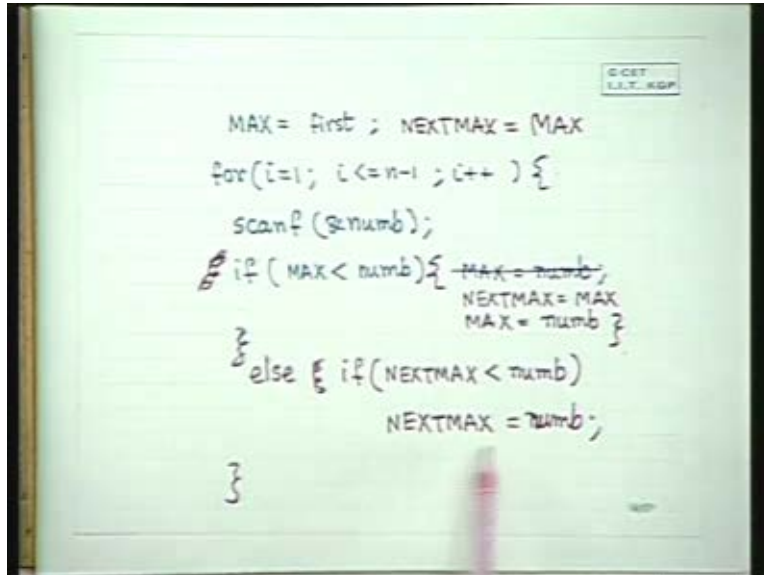 C CET
I.I.T. KGP
MAX = first ; NEXTMAX = MAX
for(i=1; i<=n-1 ; i++ ) {
scanf (&numb);
{ if ( MAX < numb) { MAX = numb;
NEXTMAX = MAX
MAX = numb }
}
else { if (NEXTMAX < numb)
NEXTMAX = numb;
}